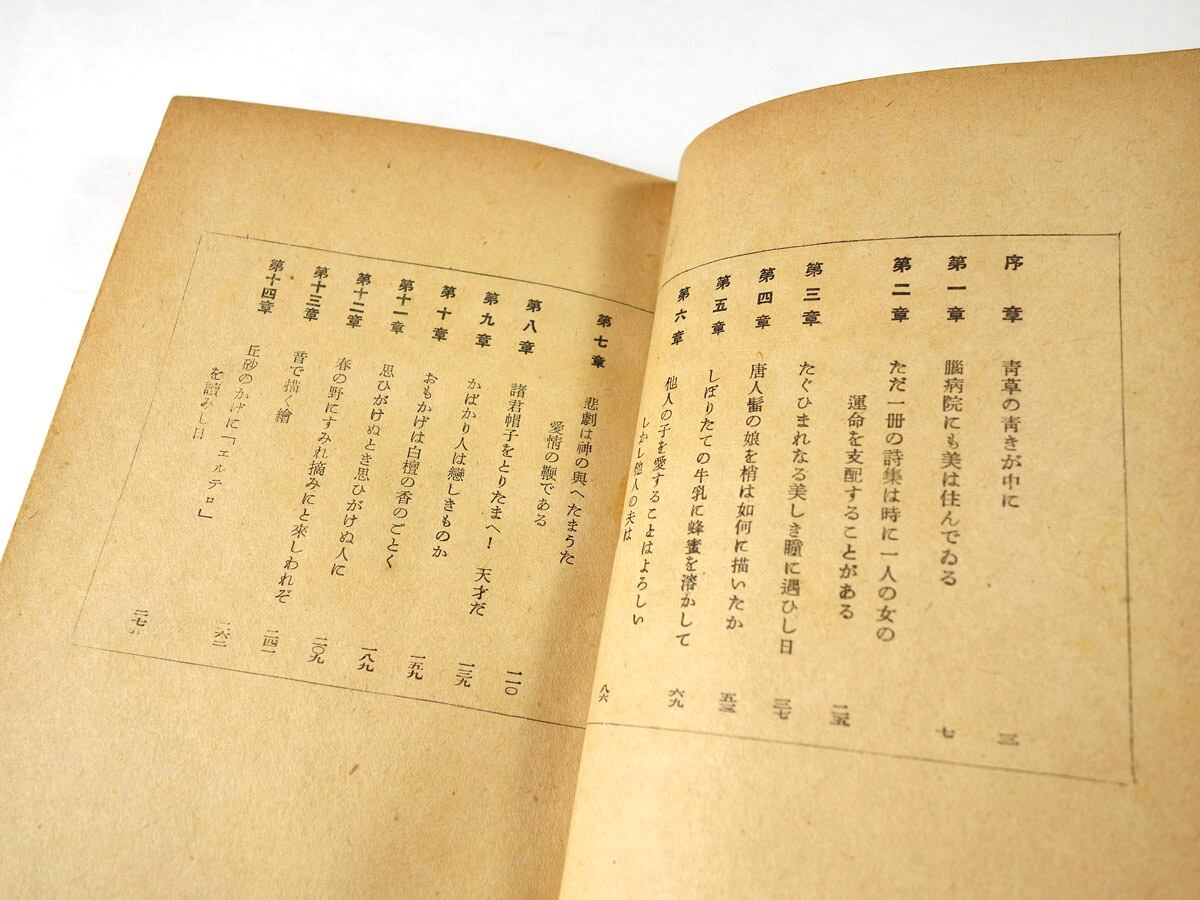 序章 青草の青きが中に 三
第一章 腦病院にも美は住んでゐる 七
第二章 ただ一冊の詩集は時に一人の女の
運命を支配することがある 二五
第三章 たぐひまれなる美しき瞳に遇ひし日 三七
第四章 唐人髷の娘を梢は如何に描いたか 五三
第五章 しぼりたての牛乳に蜂蜜を溶かして 六九
第六章 他人の子を愛することはよろしい
しかし他人の夫は 八六
第七章 悲劇は神の與へたまうた
愛情の鞭である 一一〇
第八章 諸君帽子をとりたまへ! 天才だ 一三九
第九章 かばかり人は戀しきものか 一五九
第十章 おもかげは白檀の香のごとく 一八九
第十一章 思ひがけぬとき思ひがけぬ人に 二〇九
第十二章 春の野にすみれ摘みにと來しわれぞ 二四一
第十三章 音で描く繪 二六二
第十四章 丘砂のかげに「エルテロ」
を讀みし日 二七